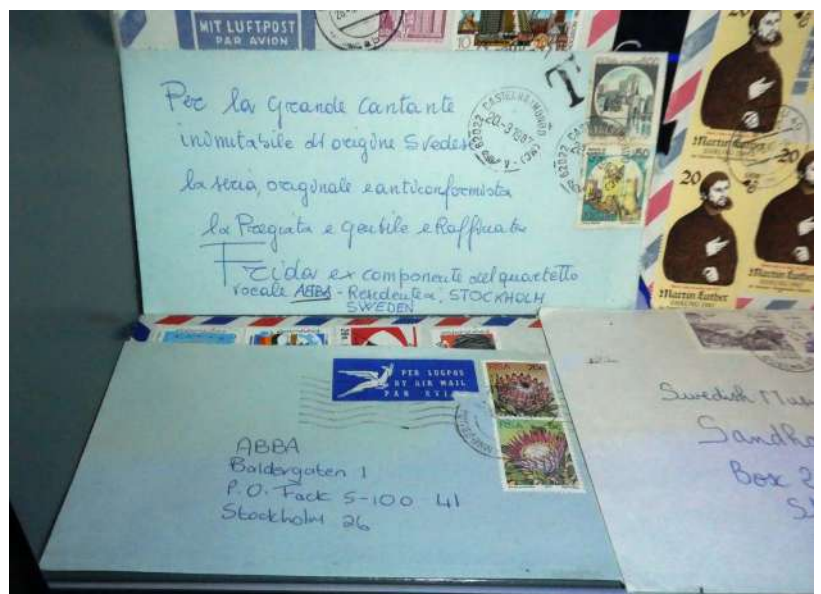 MIT LUFTPOST
PAR AVION
10
20
Per la grande Cantante
inimitabile di origine Svedese
la seria, originale e anticonformista
la Pregiata e gentile e Raffinata
Frida ex componente del quartetto
vocale ABBA - Residente a, STOCKHOLM
SWEDEN
T
62022 CASTELRAIMONDO (MC)
50
Martin Luther
20
20
Martin Luther
Martin Luther
PER LUGPOS
BY AIR MAIL
PAR AVION
RSA 20c
RSA
ABBA
Baldergaten 1
P.O. Fack S-100 41
Stockholm 26
Swedish
Box